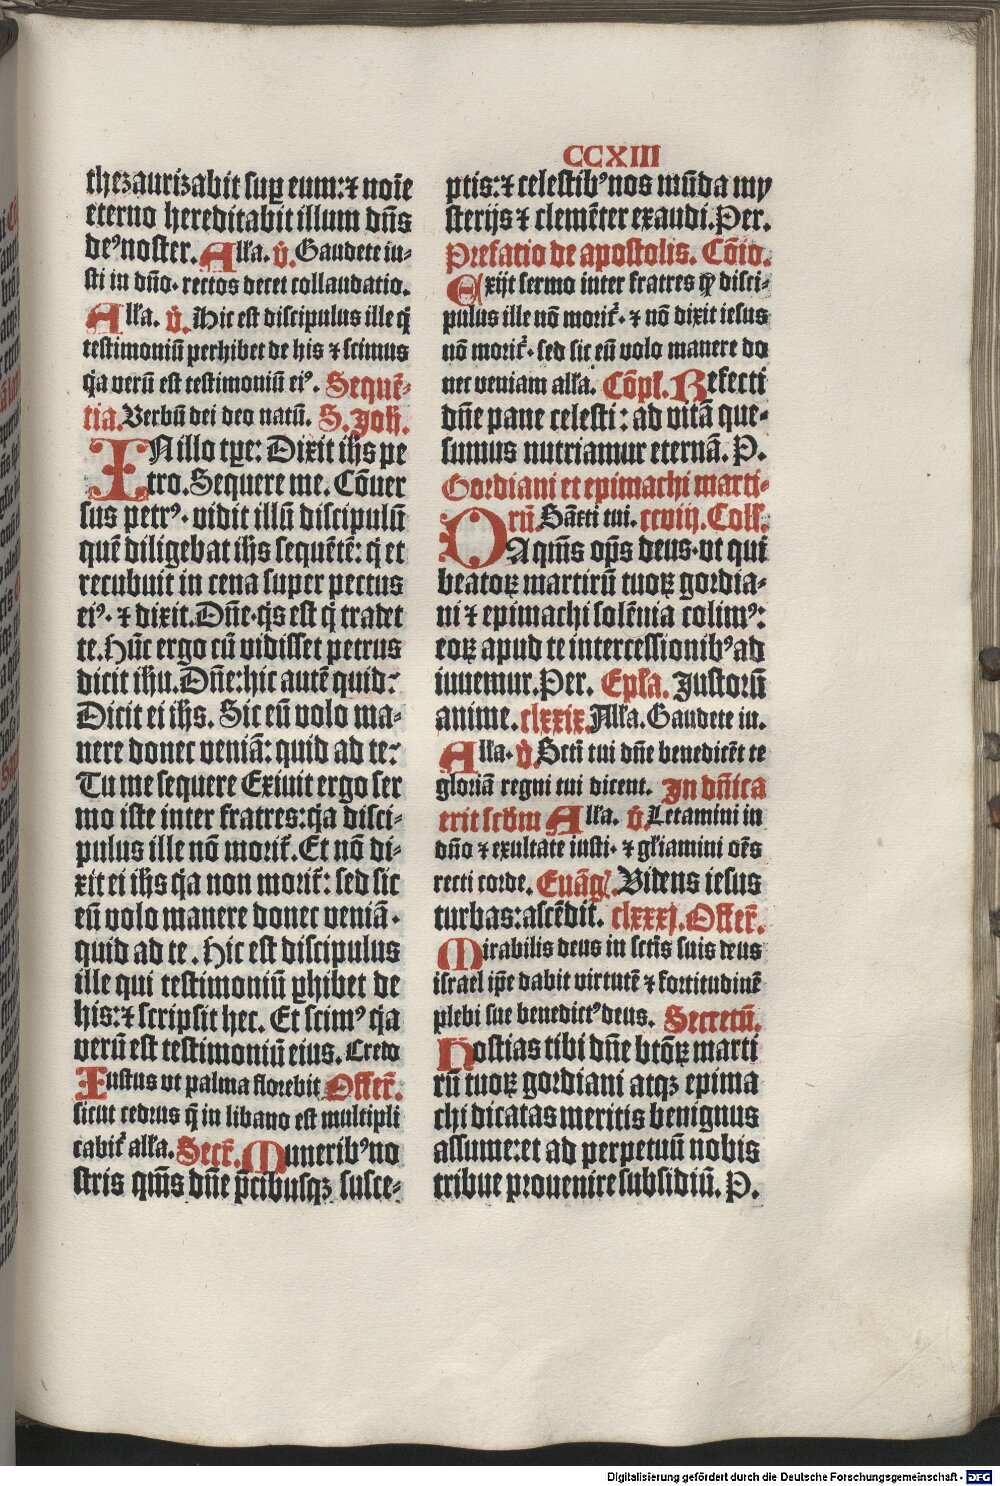 CCXIII
thezaurizabit suꝑ eum:⁊ noīe
eterno hereditabit illum dn̄s
de⁹noster. Alla. v̇. Gaudete iu-
sti in dn̄o. rectos decet collaudatio.
Alla. v̇. Hic est discipulus ille q̇
testimoniū perhibet de his ⁊ scimus
q̇a verū est testimoniū ei⁹. Sequē-
tia. Verbū dei deo natū. S. Joh.
IN illo tꝑe: Dixit ih̄s pe
tro. Sequere me. Cōuer
sus petr⁹. vidit illū discipulū
quē diligebat ih̄s sequētē: q̇ et
recubuit in cena super pectus
ei⁹. ⁊ dixit. Dn̄e.q̇s est q̇ tradet
te. Hūc ergo cū vidisset petrus
dicit ih̄u. Dn̄e:hic autē quid?
Dicit ei ih̄s. Sic eū volo ma-
nere donec veniā: quid ad te?
Tu me sequere Exiuit ergo ser
mo iste inter fratres:q̇a disci-
pulus ille nō morit᷑. Et nō di-
xit ei ih̄s q̇a non morit᷑: sed sic
eū volo manere donec veniā.
quid ad te. Hic est discipulus
ille qui testimoniū ꝑhibet de
his:⁊ scripsit hec. Et scim⁹ q̇a
verū est testimoniū eius. Credo
Iustus vt palma florebit Offer̄.
sicut cedrus q̄ in libano est multipli
cabit᷑ alła. Secr̄. Munerib⁹no
stris qm̄s dn̄e p̄cibusqꝫ susce-
ptis:⁊ celestib⁹nos mūda my
sterijs ⁊ clemēter exaudi. Per.
Prefatio de apostolis. Cōio.
Exijt sermo inter fratres ꝙ disci-
pulus ille nō morit᷑. ⁊ nō dixit iesus
nō morit᷑. sed sic eū volo manere do
nec veniam alła. Cōpl. Refecti
dn̄e pane celesti: ad vitā que-
sumus nutriamur eternā. P.
Gordiani et epimachi marti-
rū. Sācti tui. ccviij. Coll.
DA qm̄s op̄s deus.vt qui
beatoꝝ martirū tuoꝝ gordia-
ni ⁊ epimachi solēnia colim⁹:
eoꝝ apud te intercessionib⁹ad
iuuemur. Per. Epła. Justorū
anime. clxxix. Alla. Gaudete iu.
Alla. v̇. Scti tui dn̄e benedicēt te
gloriā regni tui dicent. In dn̄ica
erit scd̄m Alla. v̇. Letamini in
dn̄o ⁊ exultate iusti. ⁊ gl̄iamini oēs
recti corde. Euāg. Videns iesus
turbas:ascēdit. clxxxj. Offer̄.
Mirabilis deus in sctīs suis deus
israel ip̄e dabit virtutē ⁊ fortitudinē
plebi sue benedict⁹deus. Secretū.
Hostias tibi dn̄e btōꝝ marti
rū tuoꝝ gordiani atqꝫ epima
chi dicatas meritis benignus
assume:et ad perpetuū nobis
tribue prouenire subsidiū. P.
Digitalisierung gefördert durch die Deutsche Forschungsgemeinschaft - DFG